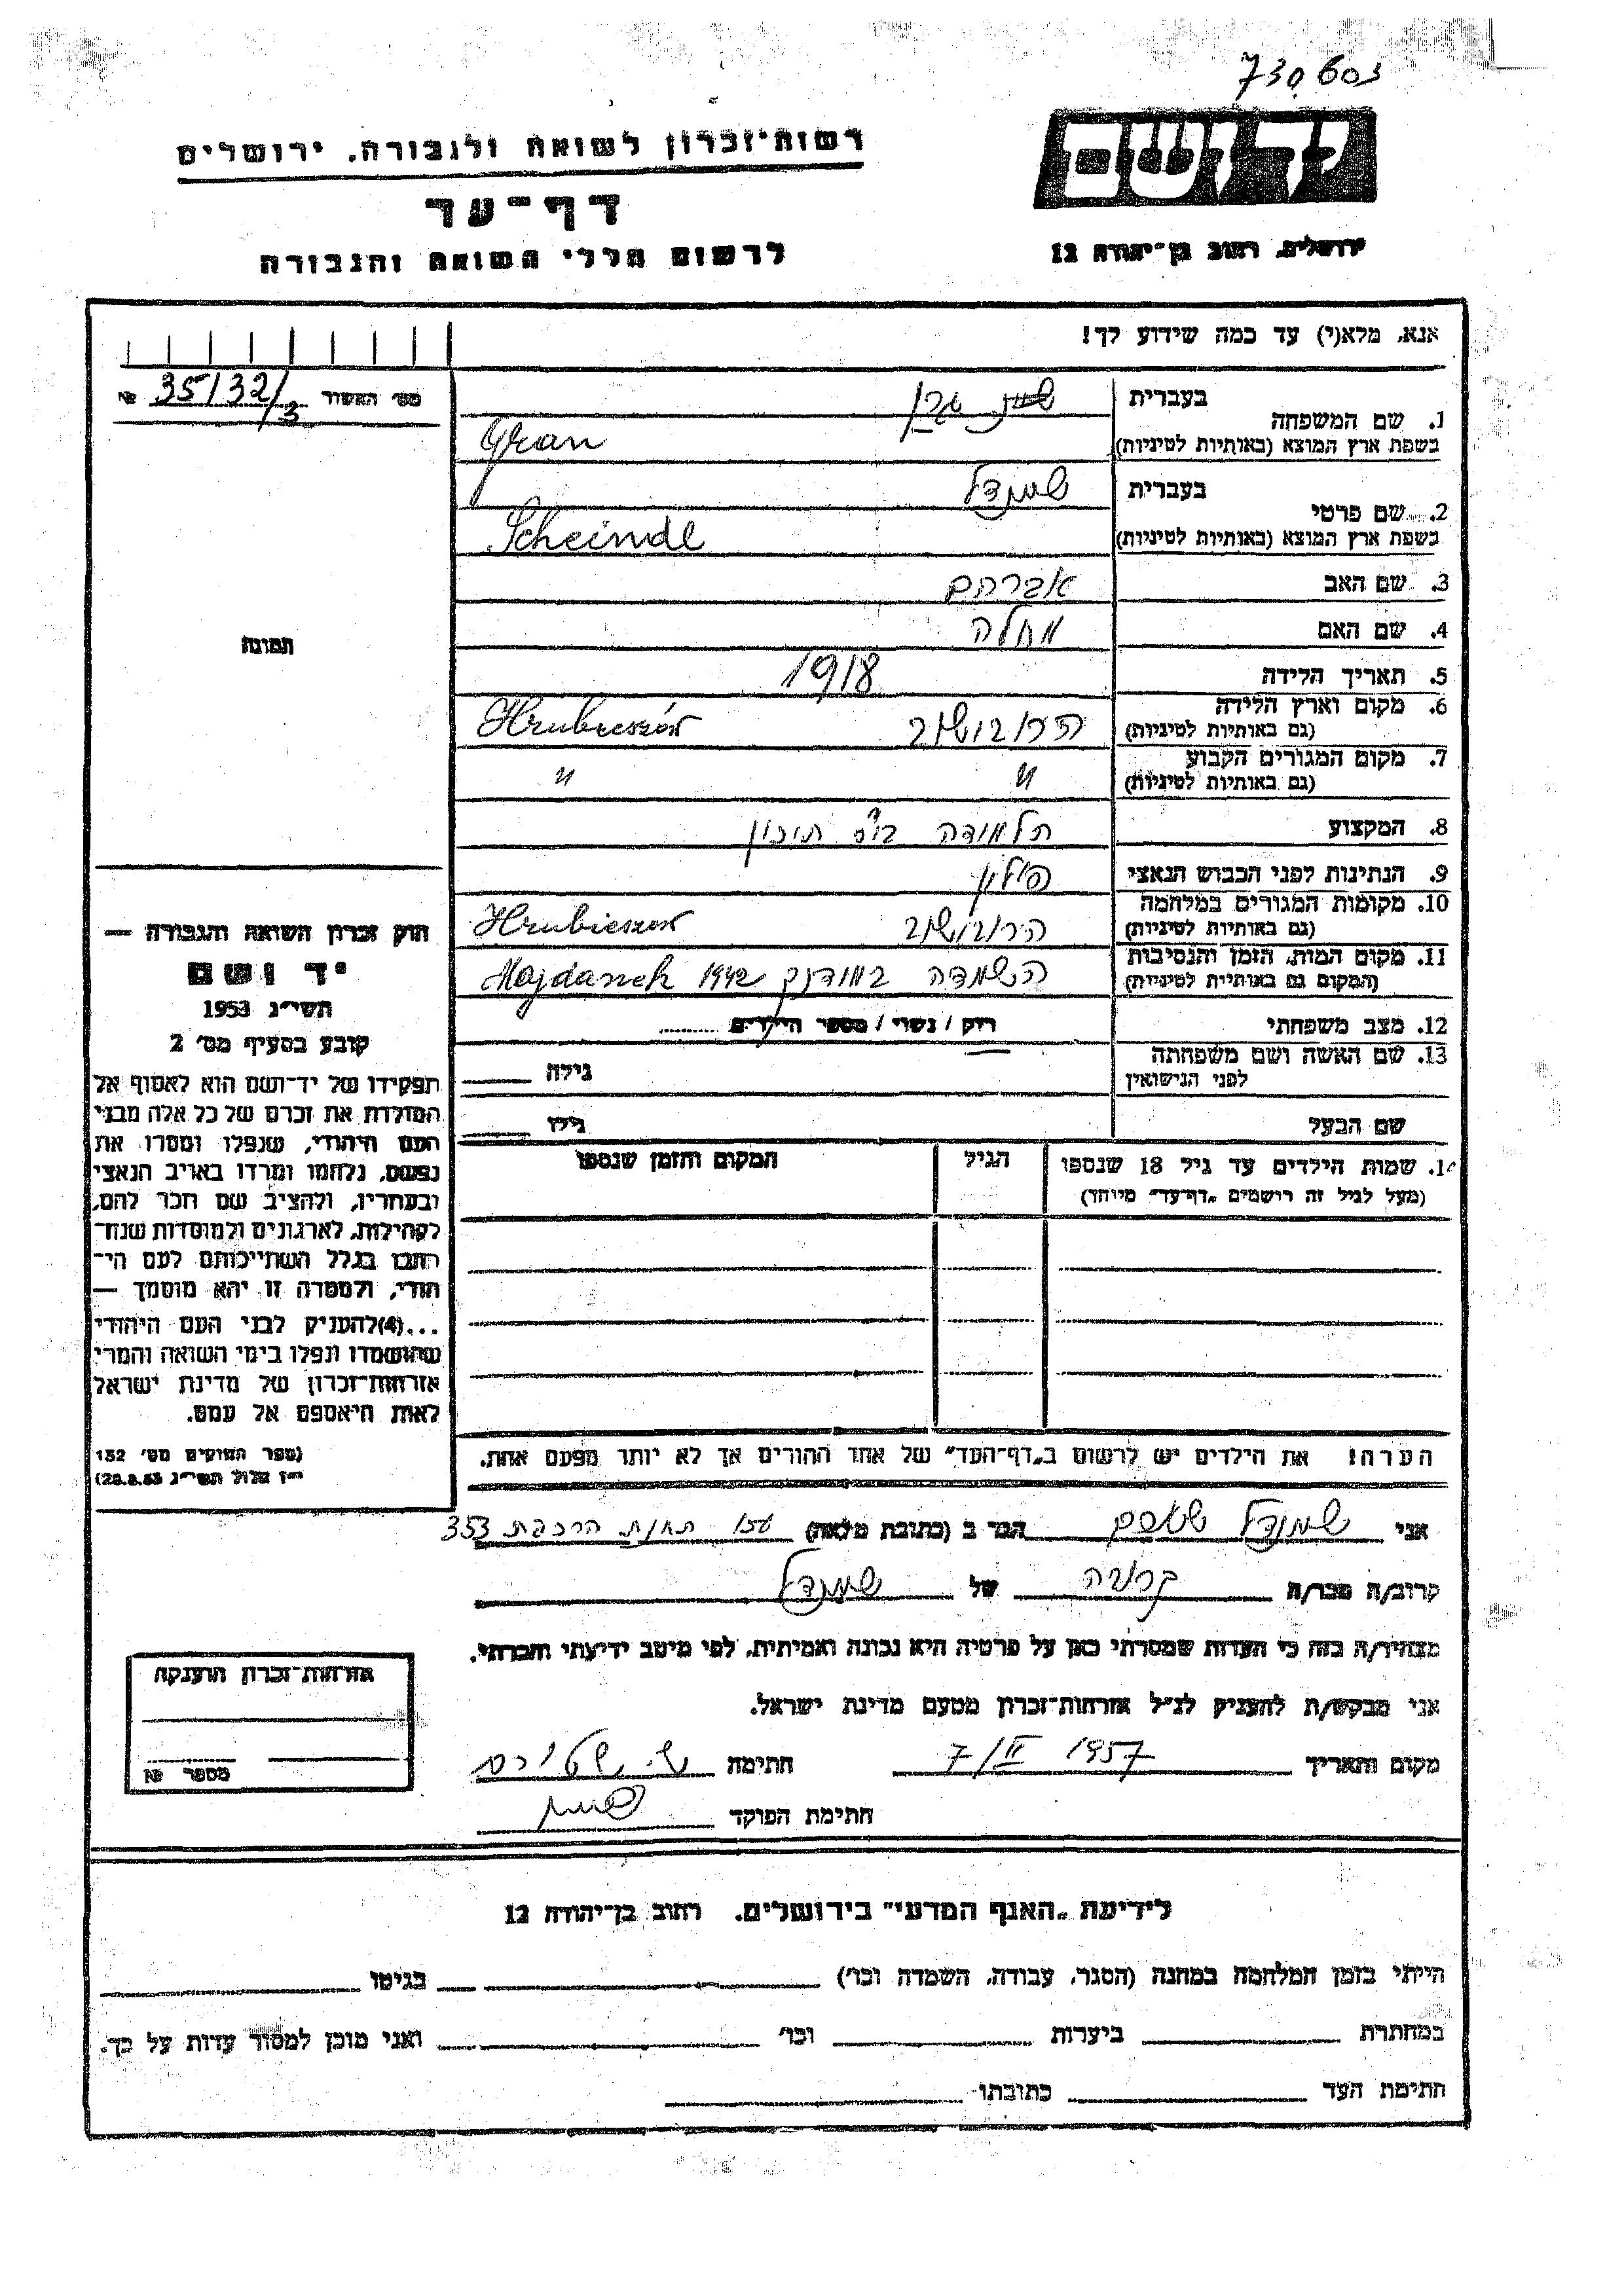 730603
יד ושם
ירושלים, רחוב בן־יהודה 12
רשות־זכרון לשואה ולגבורה, ירושלים
דף־עד
לרשום חללי השואה והגבורה
אנא, מלא(י) עד כמה שידוע לך!
מס׳ האשור № 35/32/3
תמונה
חוק זכרון השואה והגבורה —
יד ושם
תשי״ג 1953
קובע בסעיף מס׳ 2
תפקידו של יד־ושם הוא לאסוף אל
המולדת את זכרם של כל אלה מבני
העם היהודי, שנפלו ומסרו את
נפשם, נלחמו ומרדו באויב הנאצי
ובעוזריו, ולהציב שם וזכר להם,
לקהילות, לארגונים ולמוסדות שנח־
רבו בגלל השתייכותם לעם הי־
הודי, ולמטרה זו יהא מוסמך —
...(4)להעניק לבני העם היהודי
שהושמדו ונפלו בימי השואה והמרי
אזרחות־זכרון של מדינת ישראל
לאות היאספם אל עמם.
(ספר החוקים מס׳ 132
י״ז אלול תשי״ג 28.8.53)
1. שם המשפחה
בעברית גרן
בשפת ארץ המוצא (באותיות לטיניות) Gran
2. שם פרטי
בעברית שיינדל
בשפת ארץ המוצא (באותיות לטיניות) Scheindl
3. שם האב אברהם
4. שם האם מחלה
5. תאריך הלידה 1918
6. מקום וארץ הלידה
(גם באותיות לטיניות) הרובישוב Hrubieszów
7. מקום המגורים הקבוע
(גם באותיות לטיניות) " "
8. המקצוע תלמודה בי"ס תיכון
9. הנתינות לפני הכבוש הנאצי פולין
10. מקומות המגורים במלחמה
(גם באותיות לטיניות) הרובישוב Hrubieszow
11. מקום המות, הזמן והנסיבות
(המקום גם באותיות לטיניות) הושמדה במידנק 1942 Majdanek
12. מצב משפחתי רווק / נשוי / מספר הילדים
13. שם האשה ושם משפחתה
לפני הנישואין גילה
שם הבעל גילו
14. שמות הילדים עד גיל 18 שנספו הגיל המקום והזמן שנספו
(מעל לגיל זה רושמים „דף־עד״ מיוחד)
הערה! את הילדים יש לרשום ב„דף־העד״ של אחד ההורים אך לא יותר מפעם אחת.
אני שיינדל הגר ב (כתובת מלאה) תחנת הרכבת 353
קרוב/ה מכר/ה קרובה של שיינדל
מצהיר/ה בזה כי העדות שמסרתי כאן על פרטיה היא נכונה ואמיתית, לפי מיטב ידיעתי והכרתי.
אני מבקש/ת להעניק לנ״ל אזרחות־זכרון מטעם מדינת ישראל.
מקום ותאריך 7/II 1957 חתימה
חתימת הפוקד
אזרחות־זכרון הוענקה
מספר №
לידיעת „האגף המדעי״ בירושלים, רחוב בן־יהודה 12
הייתי בזמן המלחמה במחנה (הסגר, עבודה, השמדה וכו׳) בגיטו
במחתרת ביערות וכו׳ ואני מוכן למסור עדות על כך.
חתימת העד כתובתו